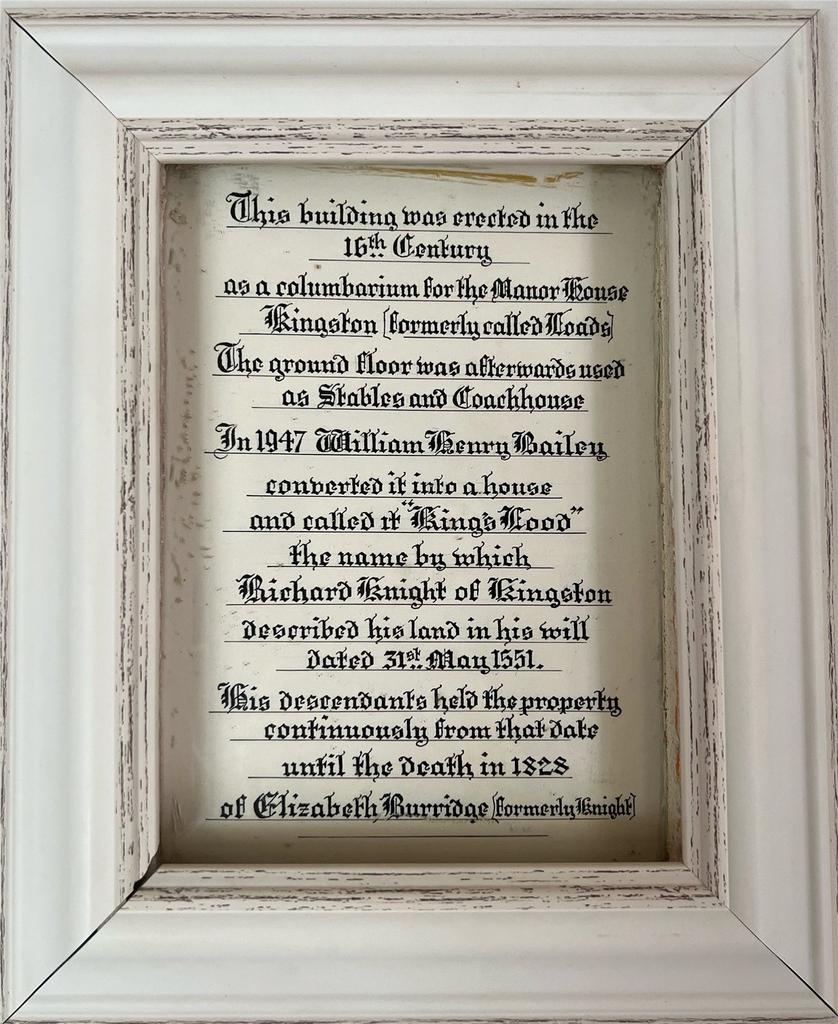 This building was erected in the
16th Century
as a columbarium for the Manor House
Kingston (formerly called Loads)
The ground floor was afterwards used
as Stables and Coachhouse
In 1947 William Henry Bailey
converted it into a house
and called it "King's Lood"
the name by which
Richard Knight of Kingston
described his land in his will
dated 31st May 1551.
His descendants held the property
continuously from that date
until the death in 1828
of Elizabeth Burridge (formerly Knight)